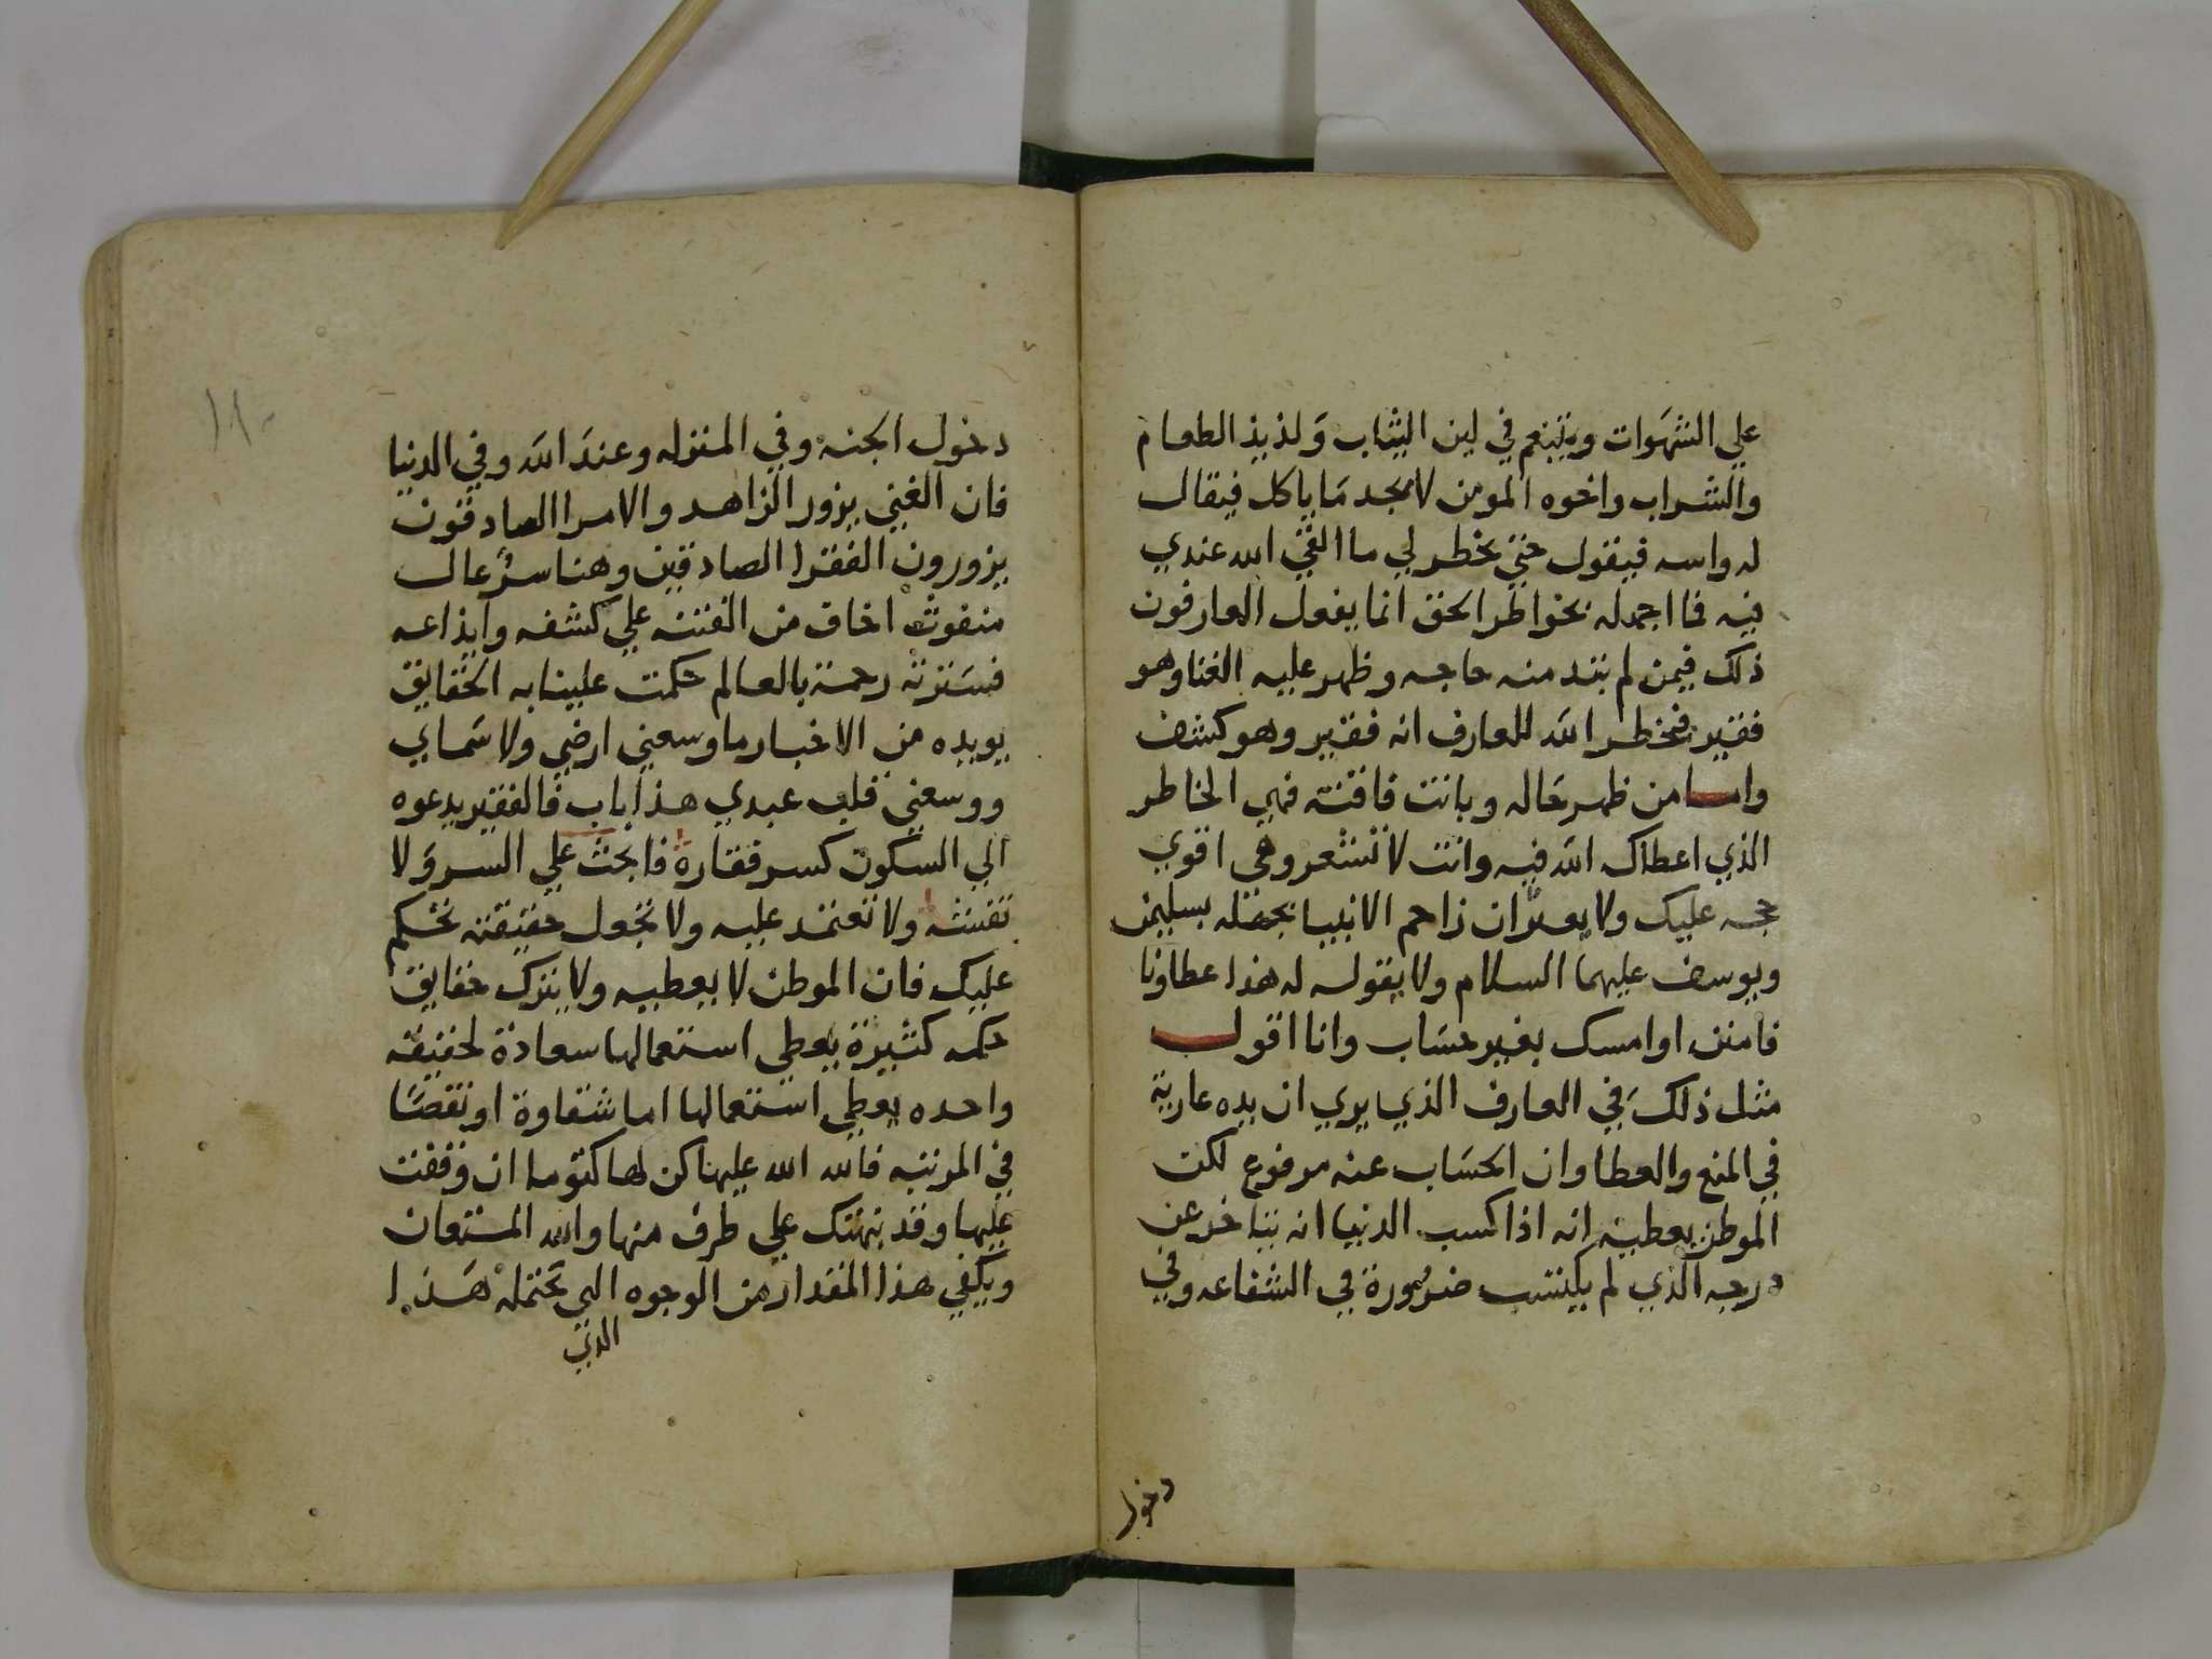 علي الشهوات ويتنعم في لين الثياب وَلذيذ الطعام
والشراب واخوه المومن لا يجد مَا ياكل فيقال
له واسه فيقول حتي يخطر لي ما القي الله عندي
فيه فما اجهله بخواطر الحق انما يفعل العارفون
ذلك فيمن لم تبد منه حاجه وظهر عليه الغنا وهو
فقير فيخطر الله للعارف انه فقير وهو كشف
واما من ظهر حَاله وبانت فاقته فهي الخاطر
الذي اعطاك الله فيه وانت لا تشعر وهي اقوي
حجه عليك ولا يغتر ان زاحم الانبيا بجهله بسليمن
ويوسف عليهما السلام ولا يقول له هذا عطاونا
فامنن او امسك بغير حسَاب وانا اقول
مثل ذلكَ في العارف الذي يري ان يده عارية
في المنع والعطا وان الحسَاب عنه مرفوع لكن
الموطن يعطيه انه اذا كسب الدنيا انه يتاخر عن
درجه الذي لم يكتسب ضرورة في الشفاعه وفي
دخول
١١٠
دخول الجنه وفي المنزله وعندَ الله وفي الدنيا
فان الغني يزور الزاهد والامرا الصادقون
يزورون الفقرا الصادقين وهنا سر عال
منفوث اخاف من الفتنه علي كشفه وايذاعه
فسَترته رحمة بالعالم حكمت علينا به الحقايق
يويده من الاخبار ما وسعني ارضي ولا سَماي
ووسعني قلب عبدي هذا باب فالفقير يدعوه
الي السكون كسر فقاره فابحث علي السر وَلا
تفتشه ولا تعتمد عليه ولا تجعل حقيقته تحكم
عليك فان الموطن لا يعطيه ولا يترك حقايق
حكمه كثيرة يعطي استعمالها سعادة لحقيقه
واحده يعطي استعمالها اما شقاوة او نقصًا
في المرتبه فالله الله عليها كن لها كتوما ان وقفت
عليها وقد نبهتك علي طرف منها والله المستعان
ويكفي هذا المقدار من الوجوه التي تحتمله هَذا
الذي